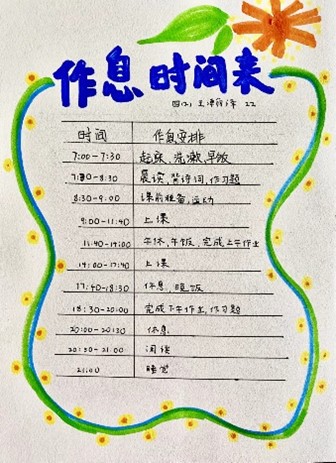 作息时间表
四(2)
22
时间 作息安排
7:00-7:30 起床、洗漱、早饭
7:30-8:30 晨读、背诗词、作习题
8:30-9:00 课前准备、运动
9:00-11:40 上课
11:40-14:00 午休、午饭、完成上午作业
14:00-17:40 上课
17:40-18:30 休息、晚饭
18:30-20:00 完成下午作业、作习题
20:00-20:30 休息
20:30-21:00 阅读
21:00 睡觉